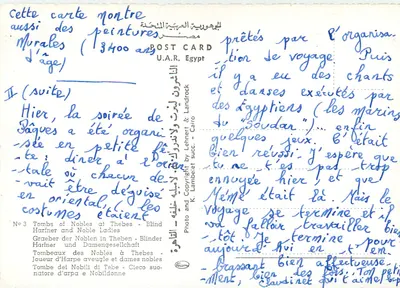 Cette carte montre
aussi des peintures
Murales (3400 ans
d'âge)
II (suite)
Hier, la soirée de
Pâques a été organi-
sée en petite fê-
te: dîner à l'orien-
tale où chacun de-
vait être déguisé
en oriental(e). les
costumes étaient
الجمهورية العربية المتحدة
مصر
POST CARD
U.A.R. Egypt
Photo and Copyright by Lehnert & Landrock
K. Lambelet succ. - Cairo
Nº 3 Tombs of Nobles at Thebes - Blind
Hariner and Noble Ladies
Graeber der Noblen in Theben - Blinder
Harfner und Damengesellschaft
Tombeaux des Nobles à Thebes -
Joueur d'Harpe aveugle et dames nobles
Tombe dei Nobili di Tebe - Cieco suo-
natore d'arpa e Nobildonne
prêtés par l'organisa-
tion de voyage. Puis
il y a eu des chants
et danses exécutés par
des Egyptiens (les marins
du "Soudan")... enfin
quelques jeux. C'était
bien réussi. J'espère que
tu ne t'es pas trop
ennuyée hier et que
Mémé était là. Mais le
Voyage se termine et il
va falloir travailler bien-
tôt. Je termine pour
aujourd'hui en t'em-
brassant bien affectueuse-
ment, bien des fois. Ton petit